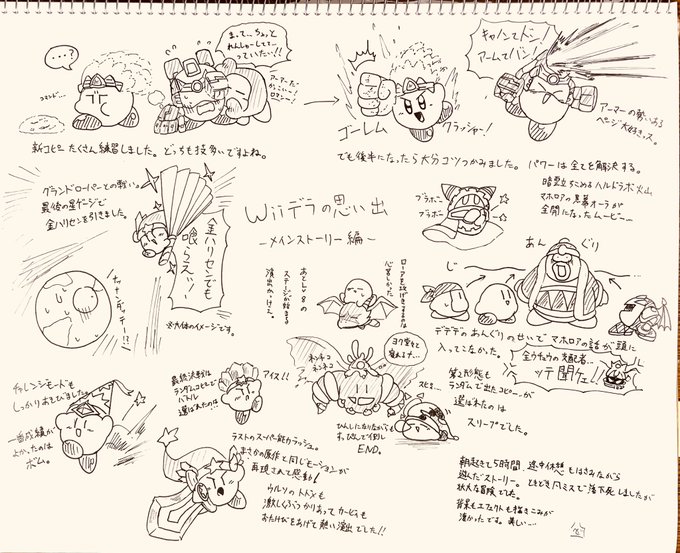 …?
コマンド…
まって、ちょっと
れんしゅーしてて…
っていうたい…!!
アーマーだ
かっこいいー!
ロマンー!
新コピーたくさん練習しました。どっちも技多いですよね。
ゴーレム
クラッシャー!
キャノンでドン!
アームでバン!
アーマーの勢いある
ページ大好きっス。
でも後半になったら大分コツつかみました。パワーは全てを解決する。
グランドローパーとの戦い。
最後の星ゲージで
金ハリセンを引きました。
金ハリセンでも
喰らえッッ!
※大体のイメージです。
Wiiデラの思い出
-メインストーリー編-
ブラボー
ブラボー
暗雲立ちこめるハルドラボ火山
マホロアの黒幕オーラが
全開になったムービー…
ローアを
心苦しかった
あとLv8の
ステージが始まる
演出かっけえ。
じ
あ ん ぐり
デデデのあんぐりのせいでマホロアの話が頭に
入ってこなかった。
全ウチュウの支配者…
ッテ聞ケェ!!
チャレンジモードも
しっかりあそびました。
一番成績が
よかったのは
ボム。
最終決戦は
ランダムコピーで
バトル
選ばれたのは!!
アイス!!
ネンチコ
ネンネコ
ヨク寝ると
スピィ…
第2形態も
ランダムで出たコピーが
選ばれたのは
スリープでした。
ひんしになりながらも
END。
ラストのスーパー能力ラッシュ。
まさかの原作と同じモーションが
再現されて感動!
ウルソのトドメも
激しくぶつかりあってカービィも
おたけびをあげて熱い演出でした!!
朝起きて5時間 途中休憩もはさみながら
遊んだストーリー。ときどき凡ミスで落下死しましたが
壮大な冒険でした。
背景もエフェクトも描きこみが
凄かったです。美しい…